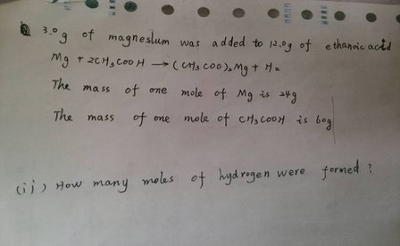 3.0g of magneslum was added to 12.0g of ethanoic acid
Mg + 2CH3COOH → (CH3COO)2Mg + H2
The mass of one mole of Mg is 24g
The mass of one mole of CH3COOH is 60g
(ii) How many moles of hydrogen were formed ?